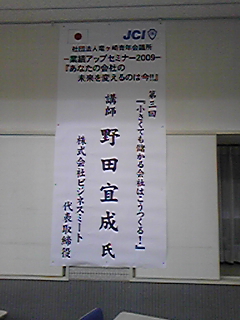 JCI
社団法人竜ヶ崎青年会議所
-業績アップセミナー2009-
『あなたの会社の
未来を変えるのは今!!』
第三回
『小さくても儲かる会社はこうつくる!』
講師 野田宜成氏
株式会社ビジネスミート
代表取締役